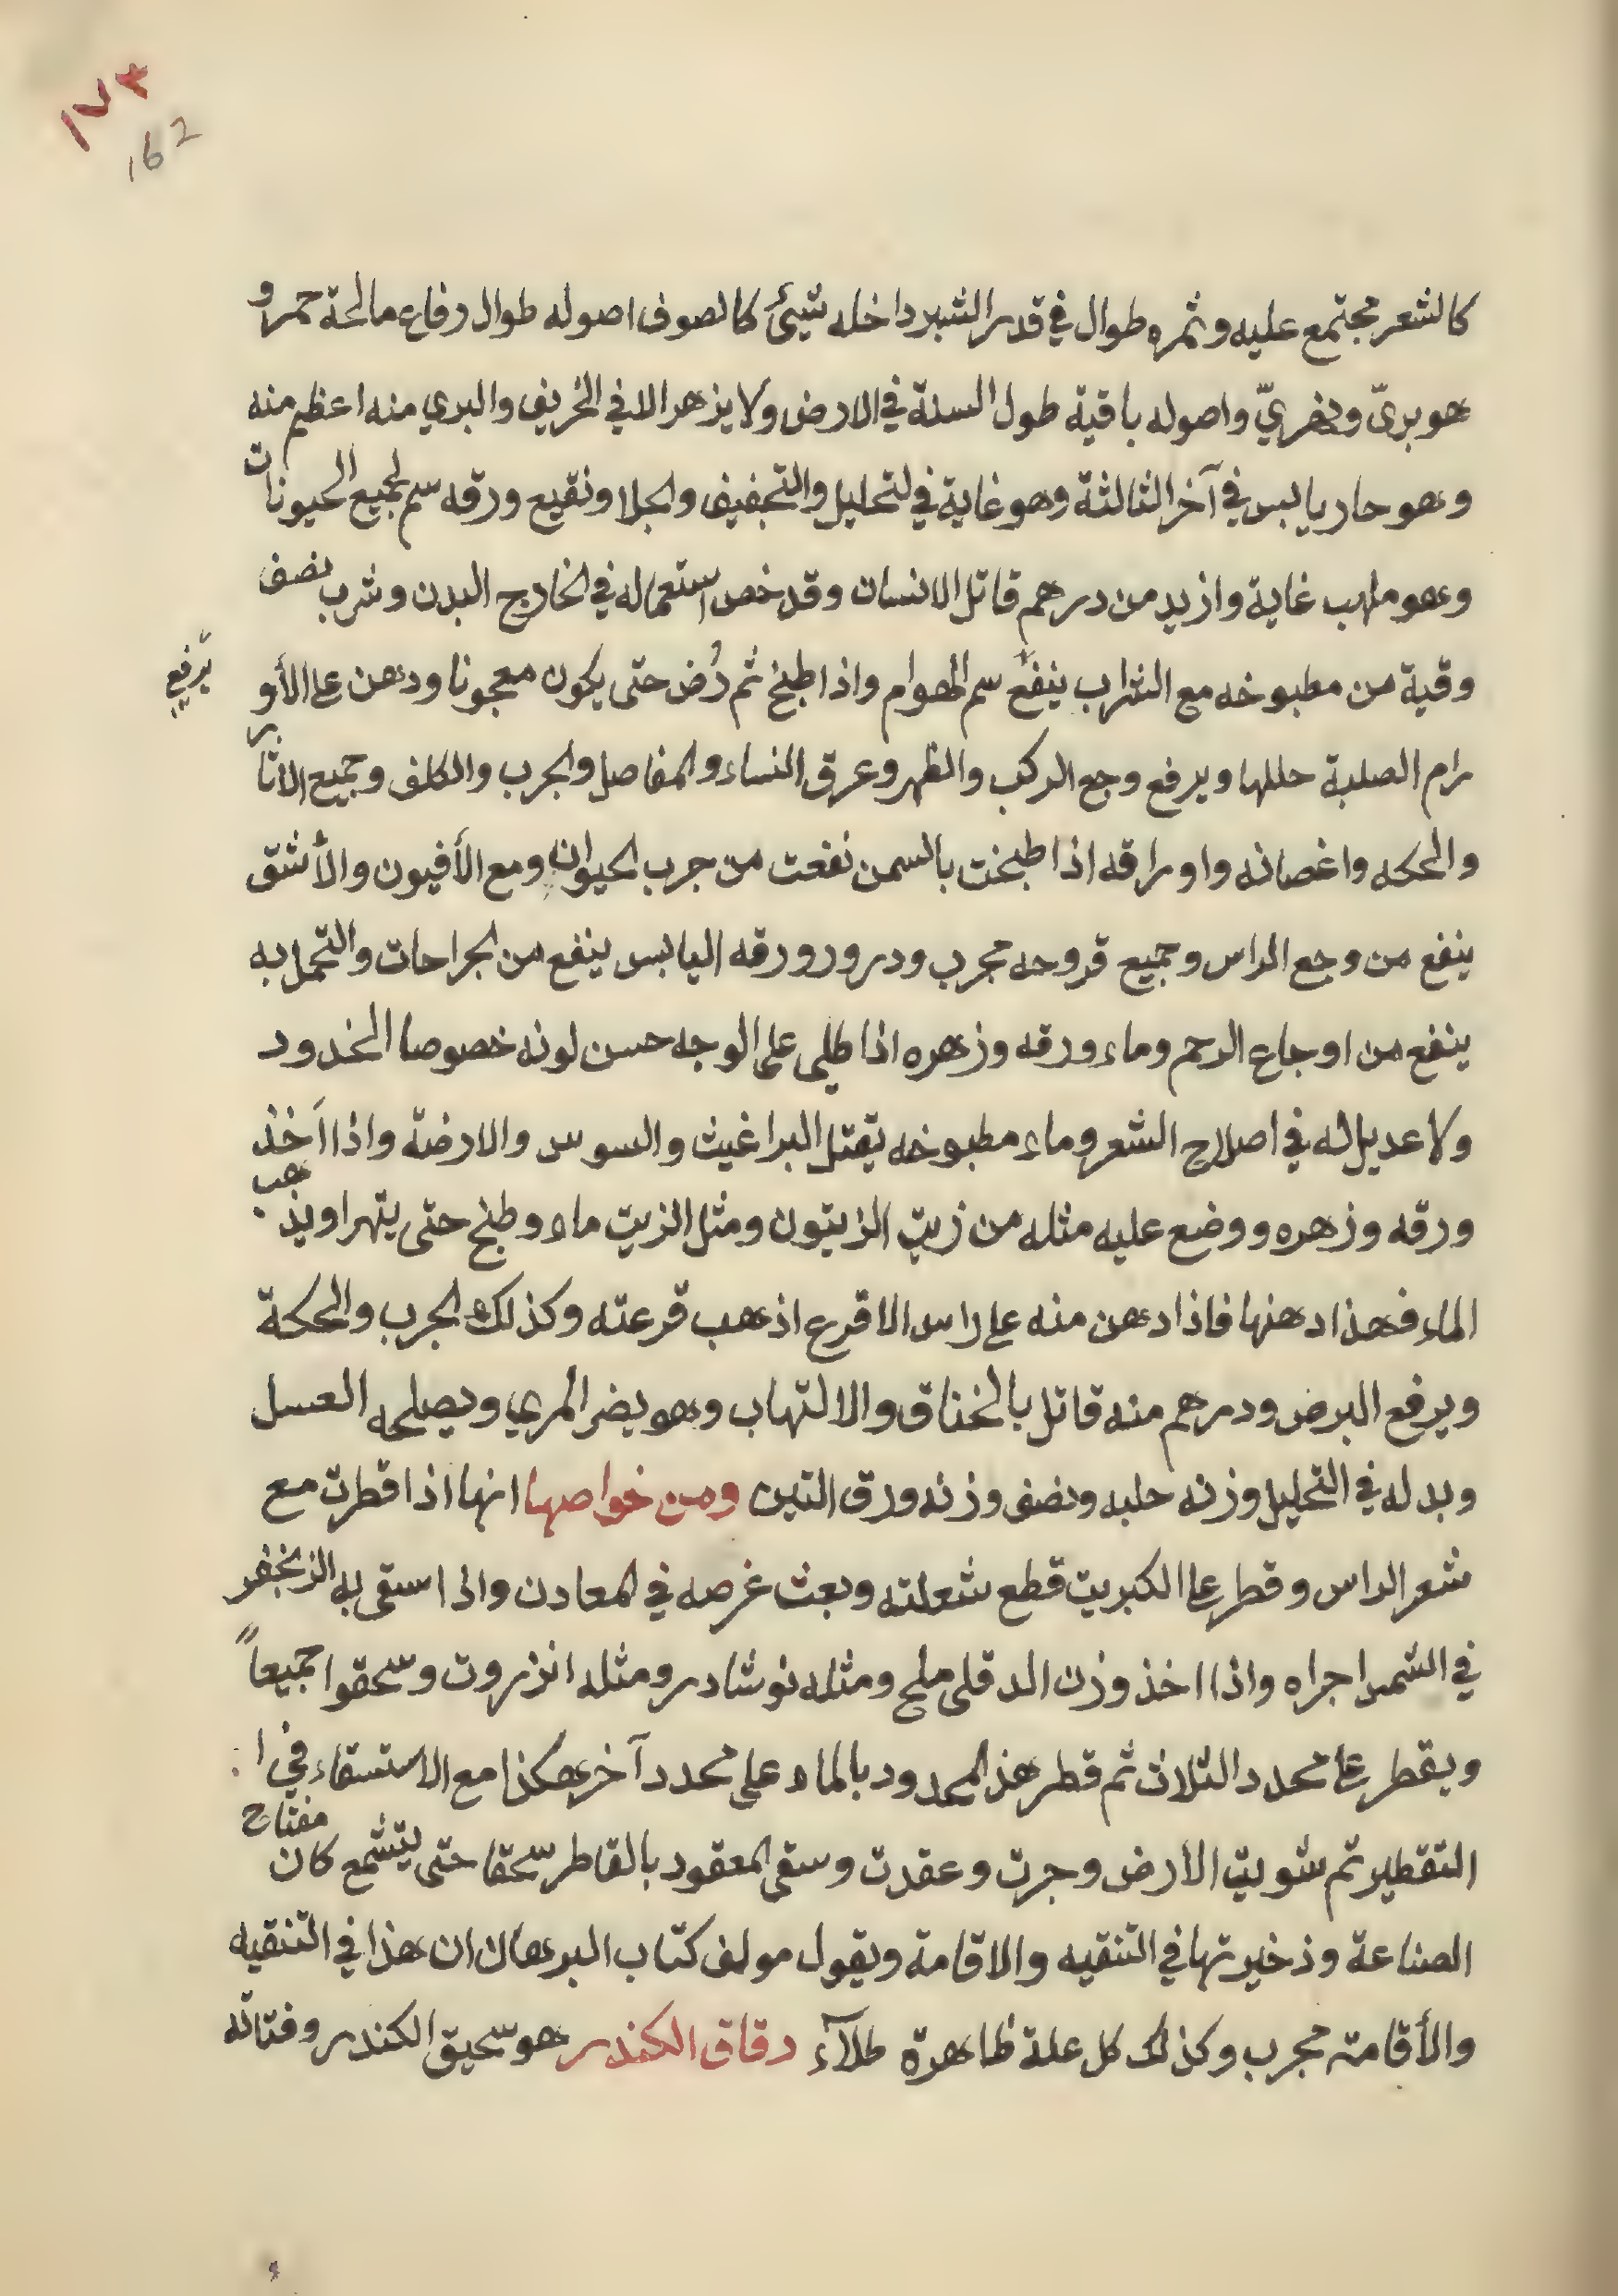 ١٧٣
162
كالشعر مجتمع عليه وثمره طوال في قدر الشبر داخله شيئ كالصوف اصوله طوال رفاع مالحة حمر او
هو بريّ ونهريّ واصوله باقية طول السنة في الارض ولا يزهر الا في الخريف والبري منه اعظم منه
وهو حار يابس في آخر الثالثة وهو غاية في لتحليل والتجفيف والجلا ونقيع ورقه سم لجميع الحيونات
وهو ملهب غاية وازيد من درهم قاتل الانسان وقد خص استعماله في الخارج البدن وشرب نصف
وقية من مطبوخه مع الشراب ينفع سم الهوام واذا طبخ ثم رُض حتى يكون معجونا ودهن على الأو
يرفع
رام الصلبة حللها ويرفع وجع الركب والظهر وعرق النساء والمفاصل والجرب والكلف وجميع الاثار
والحكه واغصانه واوراقه اذا طبخت بالسمن نفعت من جرب الحيوان ومع الأفيون والأشق
ينفع من وجع الراس وجميع قروحه مجرب ودرور ورقه اليابس ينفع من الجراحات والتحمل به
ينفع من اوجاع الرحم وماء ورقه وزهره اذا طلي على الوجه حسن لونه خصوصا الخدود
ولا عديل له في اصلاح الشعر وماء مطبوخه يقتل البراغيث والسوس والارضة واذا اخذ
ورقه وزهره ووضع عليه مثله من زيت الزيتون ومثل الزيت ماء وطبخ حتى يتهرا ويذهب
الماء فهذا دهنها فاذا دهن منه على راس الاقرع اذهب قرعته وكذلك الجرب والحكة
ويرفع البرص ودرهم منه قاتل بالخناق والالتهاب وهو يضر المري ويصلحه العسل
وبدله في التحليل وزنه حلبه ونصف وزنه ورق التين ومن خواصها انها اذا قطرت مع
شعر الراس وقطر على الكبريت قطع شعلته وبعث غرصه في المعادن واذا استقى به الزنجفر
في الشمس اجراه واذا اخذ وزن الدقلى ملح ومثله نوشادر ومثله انزروت وسحقوا جميعاً
ويقطر على محدد الثلاث ثم قطر هذ المحدود بالماء على محدد آخر هكذا مع الاستسقاء في ا
التقطير ثم شويت الأرض وجرت وعقدت وسقى المعقود بالقاطر سحقا حتى يتشمع كان مفتاح
الصناعة وذخيرتها في التنقيه والاقامة ويقول مولف كتاب البرهان ان هذا في التنقيه
والأقامة مجرب وكذلك كل علة ظاهرة طلآء دقاق الكندر هو سحيق الكندر وفتاته